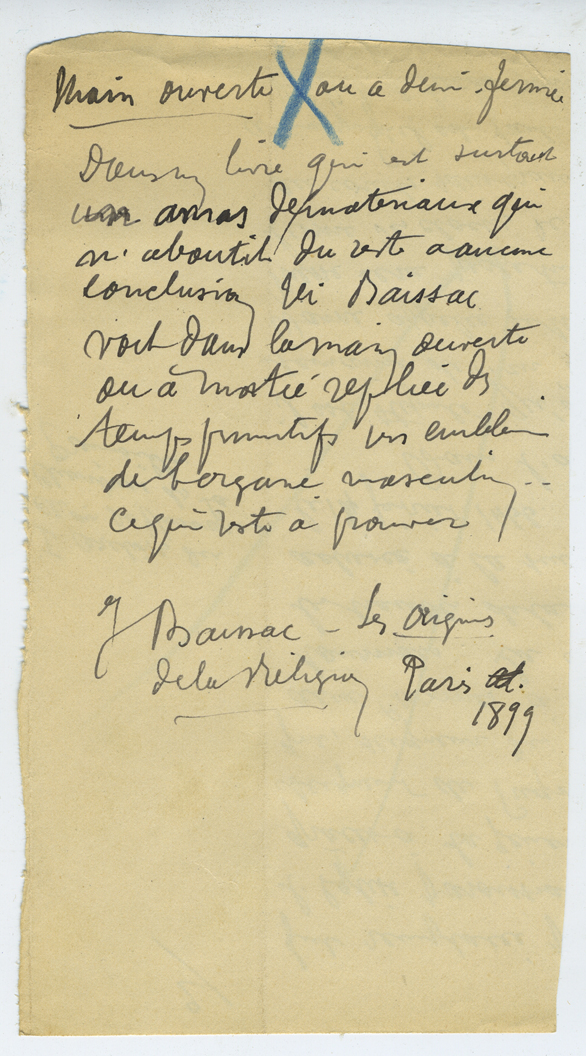 Main ouverte X ou a demi-fermée
Dans un livre qui est surtout
un amas de materiaux qui
n'aboutit du reste a aucune
conclusion, Baissac
voit dans la main ouverte
ou à moitié repliée des
temps primitifs un emblème
de l'organe masculin...
ce qui reste à prouver
J Baissac - Les Origines
de la Religion Paris
1899